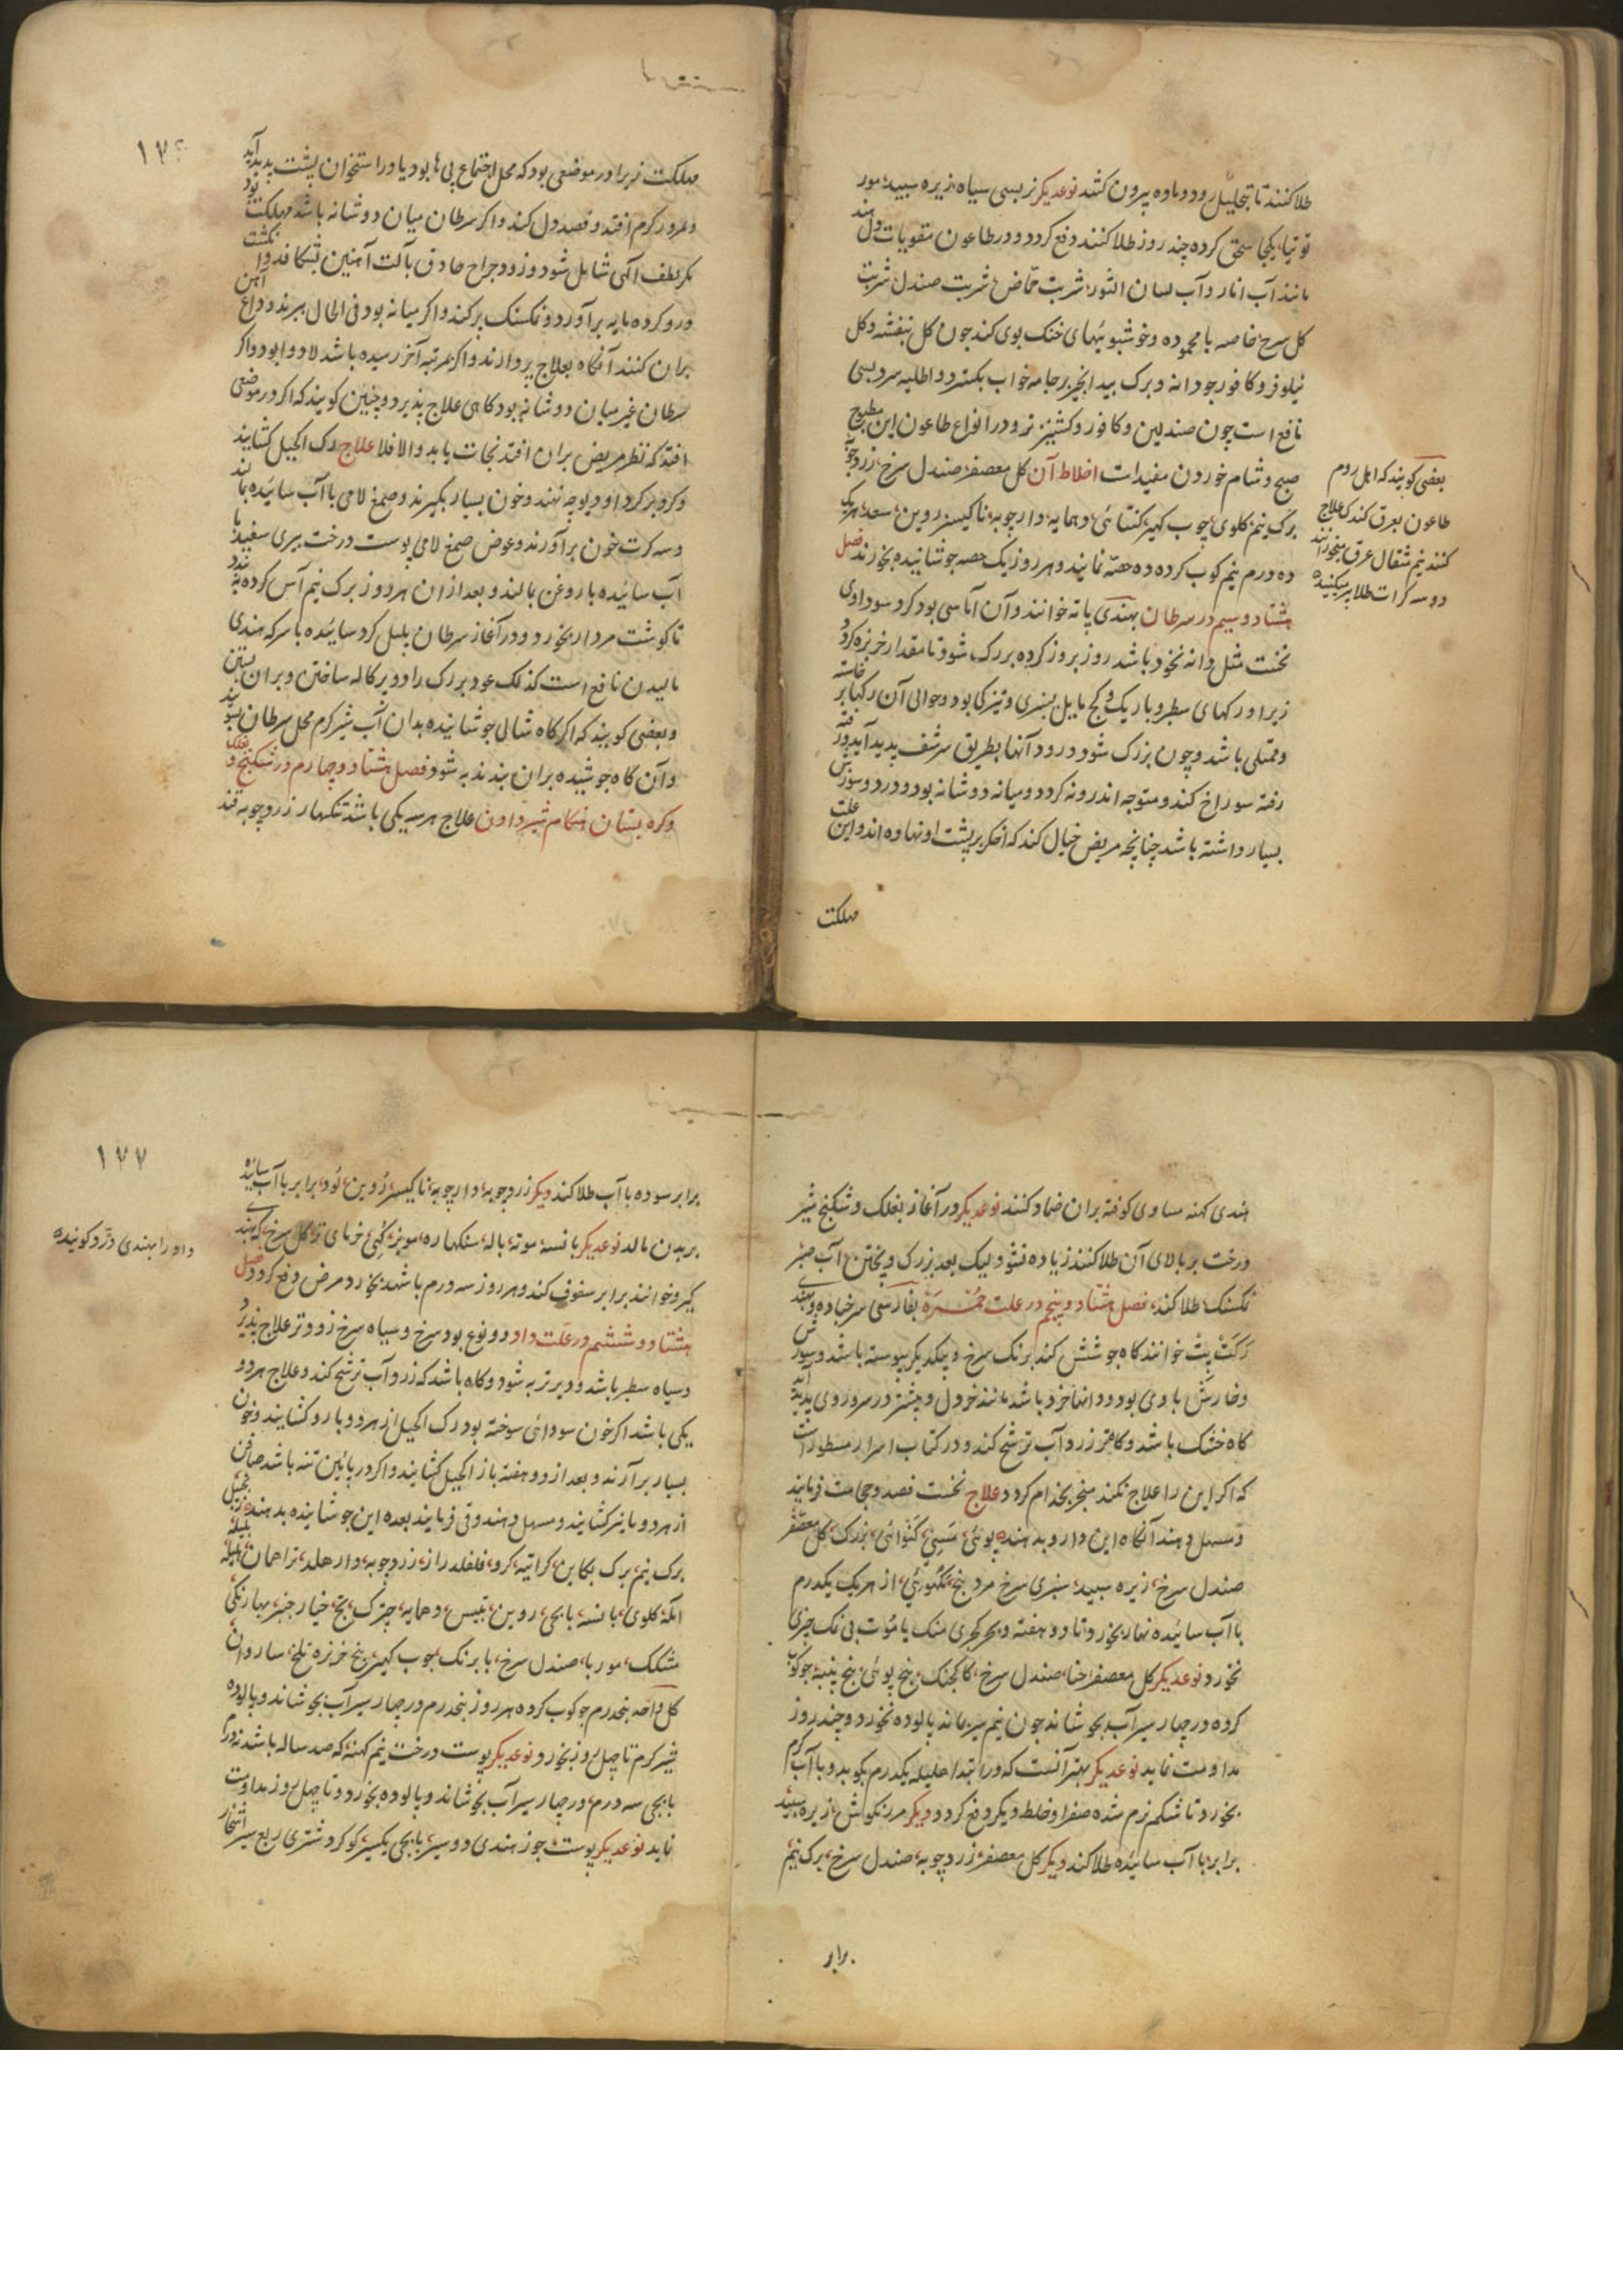 طلا کنند تا بتحلیل رود و ماده بیرون کشد نوعدیکر نربسی سیاه زیره سپید مور
توتیا یکجا سحق کرده چند روز طلا کنند دفع کردد و در طاعون مقویات دل دهند
مانند آب انار و آب لسان الثور شربت حماض شربت صندل شربت
کل سرخ خاصه با محموده و خوشبوئیهای خنک بوی کند چون کل بنفشه و کل
نیلوفر و کافور جودانه و برک بید انجیر بر جامه خواب بکسترد و اطلیه سرد بسی
نافع است چون صندلین و کافور و کشنیز تر و در انواع طاعون این مطبوخ
صبح و شام خوردن مفید است اخلاط آن کل معصفر صندل سرخ زردچوبه
برک نیم کلوی چوب کهیر کنتائی دهمایه دارچوبه ناکیسر روین سعد هریک
ده درم نیم کوب کرده ده حصه نمایند و هر روز یک حصه جوشانیده بخورند فصل
هشتاد و سیم در سرطان بهندی پاته خوانند و آن آماسی بود کرد سوداوی
نخست مثل دانه نخود باشد روز بروز کرده بزرک شود تا مقدار خربزه کردد
زیرا و رکهای سطبر و باریک و کج مایل بسبزی و تیزکی بود و حوالی آن رکها بر خاسته
و ممتلی باشد و چون بزرک شود در رود آنها بطریق سر شف پدید آید و رفته
رفته سوراخ کند و متوجه اندرونه کردد و میانه دو شانه بود و درد و سوزش
بسیار داشته باشد چنانچه مریض خیال کند که اخکر بر پشت او نهاده اند و این علت
مهلکت
بعضی کویند که اهل روم
طاعون بعرق کند که علاج
کنند نیم مثقال عرق میخورانند
دو سه کرات طلا بر میکنند
۱۷۶
مهلکت زیرا در موضعی بود که محل اجتماع پی ها بود یا در استخوان پشت پدید آید
و مرور کرم افتد و قصد دل کند و اکر سرطان میان دو شانه باشد مهلکت بود
مکر لطف آلهی شامل شود و زود جراح حاذق بآلت آهنین بشکافد و انکشت
درو کرده مایه بر آورد و نمکسنک پر کند و اکر میانه بود فی الحال ببرند و داغ آهن
بران کنند آنکاه بعلاج پردازند و اکر بمرتبه آخر رسیده باشد لا دوا بود و اکر
سرطان غیر میان دو شانه بود کاهی علاج پذیرد و چنین کویند که اکر در موضعی
افتد که نظر مریض بران افتد نجات یابد و الا فلا علاج رک اکحیل کشایند
و کرد بر کرد او دیوچه نهند و خون بسیار بکیرند و صمغ لامی با آب سائیده مالند
و سه کرت خون بر آورند و عوض صمغ لامی پوست درخت بیری سفید با
آب سائیده با روغن مالند و بعد از ان هر روز برک نیم آس کرده بندند
تا کوشت مردار بخورد و در آغاز سرطان بلبل کرد سائیده با سرکه هندی
مالیدن نافع است کذلک عود بزرک را دو پرکاله ساختن و بران بستن
و بعضی کویند که اکر کاه شالی جوشانیده بدان آب شیر کرم محل سرطان بشویند
و آن کاه جوشیده بران بندند به شود فصل هشتاد و چهارم در شکنج و بغلک
و کره پستان هنکام شیر دادن علاج هر سه یکی باشد تنکهار زردچوبه قند
هندی کهنه مساوی کوفته بران ضماد کنند نوعدیکر در آغاز بغلک و شکنج شیر
درخت بر بالای آن طلا کنند زیاده نشود لیک بعد بزرک و پختن آب صبر
نمکسنک طلا کند فصل هشتاد و پنجم در علت حمره بفارسی سرخباده و بهندی
رکت پت خوانند کاه جوشش کند برنک سرخ و بیکدیکر پیوسته باشد و سوزش
و خارش با وی بود و دانها خرد باشد مانند خردل و بیشتر در سر و روی پدید آید
کاه خشک باشد و کاهی زرد آب ترشح کند و در کتاب اسرار مسطور است
که اکر این را علاج نکند منجر بجذام کردد علاج نخست فصد و حجامت فرمایند
و مسهل دهند آنکاه این دارو بدهند پوئی سنبی کنوائی بزرک کل معصفر
صندل سرخ زیره سپید سبزی سرخ مرد بنج تکبورنی از هریک یکدرم
با آب سائیده نهار بخورد تا دو هفته و بجز کهچری منک یا موت بی نمک چیزی
نخورد نوعدیکر کل معصفر حنا صندل سرخ کا کجنک بنج پوئی بنج پنبه جوکوب
کرده در چهار سیر آب بجوشاند چون نیم سیر ماند پالوده بخورد و چند روز
مداومت نماید نوعدیکر بهتر آنست که در ابتدا هلیله یکدرم بکوبد و با آب کرم
بخورد تا شکم نرم شده صفرا و خلط دیکر دفع کردد دیکر مرزنکوش زیره سپید
برابر با آب سائیده طلا کند دیکر کل معصفر زردچوبه صندل سرخ برک نیم
برابر
۱۷۷
برابر سوده با آب طلا کند دیکر زردچوبه دارچوبه ناکیسر روین لود برابر با آب سائیده
بربدن مالد نوعدیکر بانسه موته باله سنکهاره مویز کنبی خرمای تر کل سرخ که بهندی
کیرو خوانند برابر سفوف کند و هر روز سه درم باشهد بخورد مرض دفع کردد فصل
هشتاد و ششم در علت داد دو نوع بود سرخ و سیاه سرخ زودتر علاج پذیرد
و سیاه سطبر باشد و دیرتر به شود و کاه باشد که زرد آب ترشح کند و علاج هر دو
یکی باشد اکر خون سودائی سوخته بود رک اکحیل از هر دو بازو کشایند و خون
بسیار برآرند و بعد از دو هفته باز اکحیل کشایند و اکر در پائین تنه باشد صافن
از هر دو پا نیز کشایند و مسهل دهند و قی فرمایند بعده این جوشانیده بدهند زنجبیل
برک نیم برک بکاین کراتیه کرو فلفل دراز زردچوبه دارهلد تراهمان هلیله بلیله
آمله کلوی بانسه بابچی روین بتیس دهمایه چترک بچ خیار چنبر بهارنکی
مشکک موربا صندل سرخ بابرنک چوب کهیر بنج خربزه تلخ ساروان
کل داحه پنجدرم جوکوب کرده هر روز پنجدرم در چهار سیر آب بجوشاند و پالوده
شیر کرم تا چهل روز بخورد نوعدیکر پوست درخت نیم کهنه که صد ساله باشد نه درم
بابچی سه درم در چهار سیر آب بجوشاند و پالوده بخورد و تا چهل روز مداومت
نماید نوعدیکر پوست جوز هندی دو سیر بابچی یکسیر کوکرد شتری ربع سیر اشخار
داد را بهندی دد رو کویند